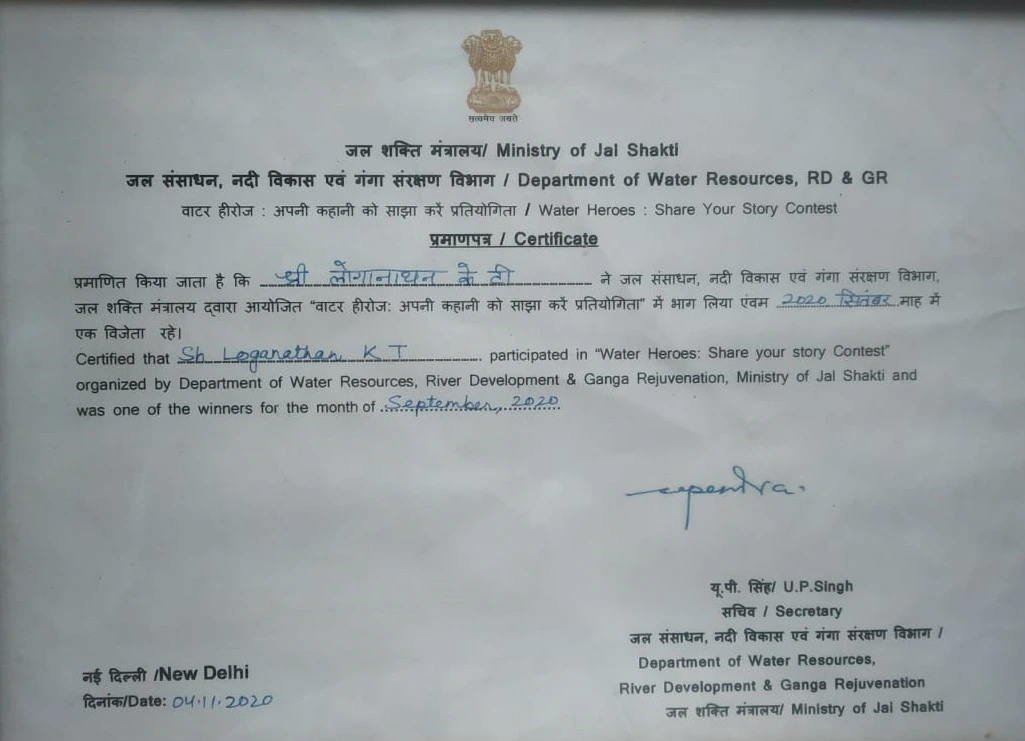 सत्यमेव जयते
जल शक्ति मंत्रालय/ Ministry of Jal Shakti
जल संसाधन, नदी विकास एवं गंगा संरक्षण विभाग / Department of Water Resources, RD & GR
वाटर हीरोज : अपनी कहानी को साझा करें प्रतियोगिता / Water Heroes : Share Your Story Contest
प्रमाणपत्र / Certificate
प्रमाणित किया जाता है कि श्री लोगानाथन के टी ने जल संसाधन, नदी विकास एवं गंगा संरक्षण विभाग,
जल शक्ति मंत्रालय द्वारा आयोजित "वाटर हीरोज: अपनी कहानी को साझा करें प्रतियोगिता" में भाग लिया एंवम 2020 सितंबर माह में
एक विजेता रहे।
Certified that Sh Loganathan K T participated in "Water Heroes: Share your story Contest"
organized by Department of Water Resources, River Development & Ganga Rejuvenation, Ministry of Jal Shakti and
was one of the winners for the month of September, 2020
upendra.
यू.पी. सिंह/ U.P.Singh
सचिव / Secretary
जल संसाधन, नदी विकास एवं गंगा संरक्षण विभाग /
Department of Water Resources,
River Development & Ganga Rejuvenation
जल शक्ति मंत्रालय/ Ministry of Jal Shakti
नई दिल्ली /New Delhi
दिनांक/Date: 04.11.2020